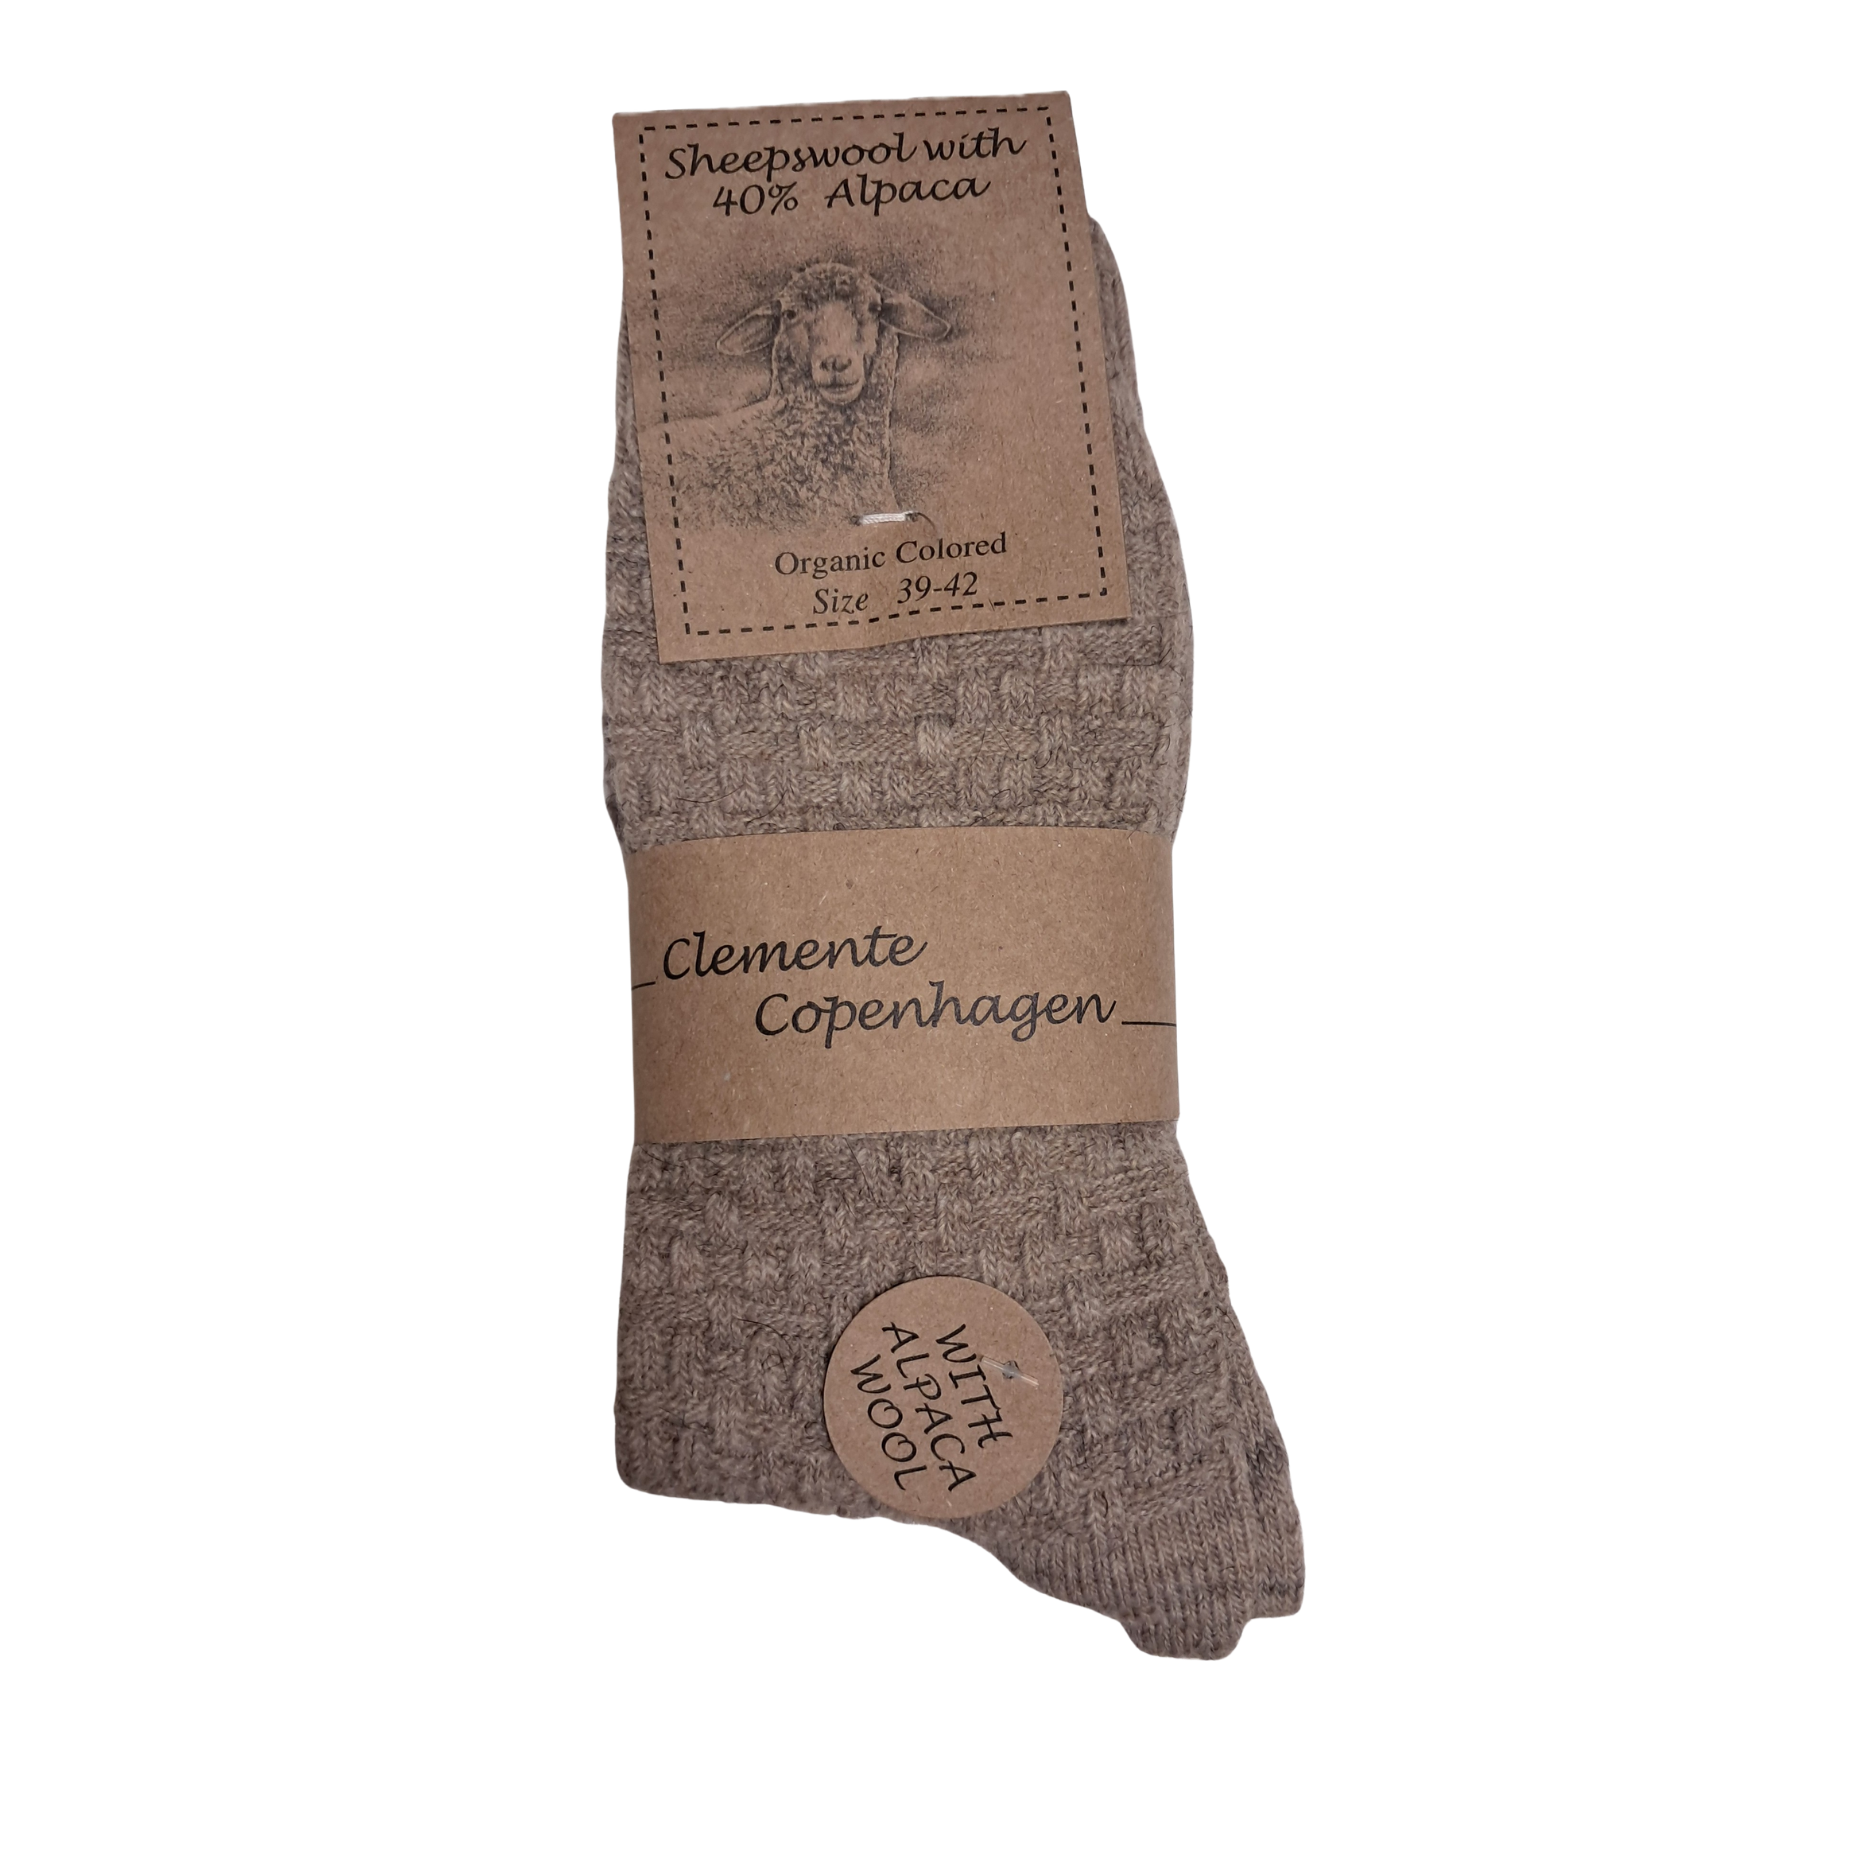 Sheepswool with
40% Alpaca
Organic Colored
Size 39-42
Clemente
Copenhagen
WITH
ALPACA
WOOL